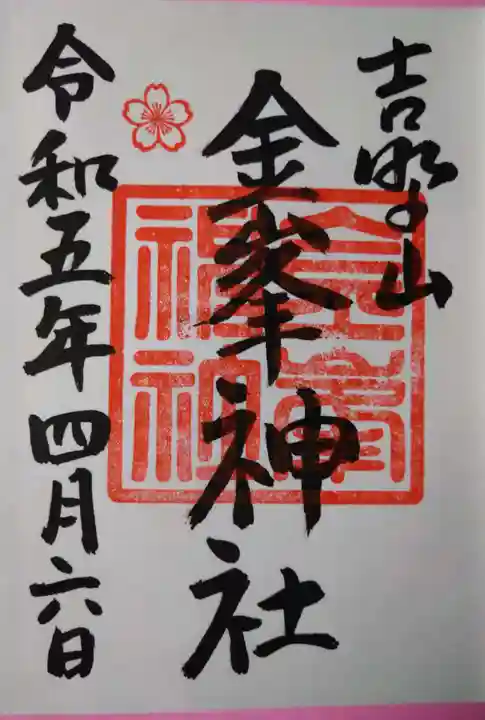 吉野山
金峯神社
令和五年四月六日
金峯神社